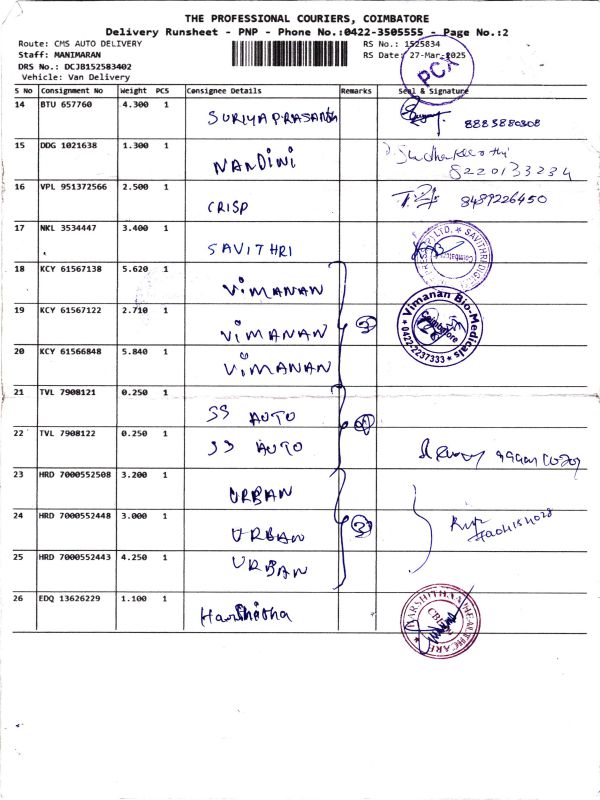 THE PROFESSIONAL COURIERS, COIMBATORE
Delivery Runsheet - PNP - Phone No.:0422-3505555 - Page No.:2
Route: CMS AUTO DELIVERY RS No.: 1525834
Staff: MANIMARAN RS Date: 27-Mar-2025
DRS No.: DCJB152583402
Vehicle: Van Delivery
PCX
S No Consignment No Weight PCS Consignee Details Remarks Seal & Signature
14 BTU 657760 4.300 1 SURIYAPRASANTH 8883880308
15 DDG 1021638 1.300 1 NANDINI 8220133234
16 VPL 951372566 2.500 1 CRISP 8489226450
17 NKL 3534447 3.400 1 SAVITHRI
18 KCY 61567138 5.620 1 VIMANAN
19 KCY 61567122 2.710 1 VIMANAN 3 Vimanan Bio-Medicals Coimbatore 0422-2237333
20 KCY 61566848 5.840 1 VIMANAN
21 TVL 7908121 0.250 1 SS AUTO
22 TVL 7908122 0.250 1 SS AUTO
23 HRD 7000552508 3.200 1 URBAN
24 HRD 7000552448 3.000 1 URBAN 3
25 HRD 7000552443 4.250 1 URBAN
26 EDQ 13626229 1.100 1 Harshitha